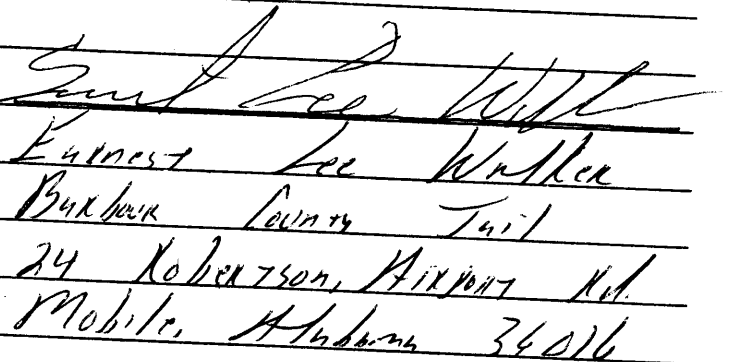 Earnest Lee Walker
Earnest Lee Walker
Barbour County Jail
24 Robertson, Airport Rd.
Mobile, Alabama 36016